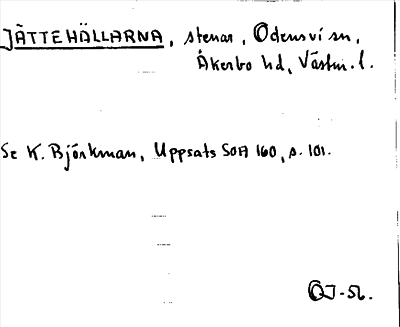 JÄTTEHÄLLARNA, stenar, Odensvi sn,
Åkerbo hd, Västm. l.
Se K. Björkman, Uppsats SOA 160, s. 101.
OJ-56.